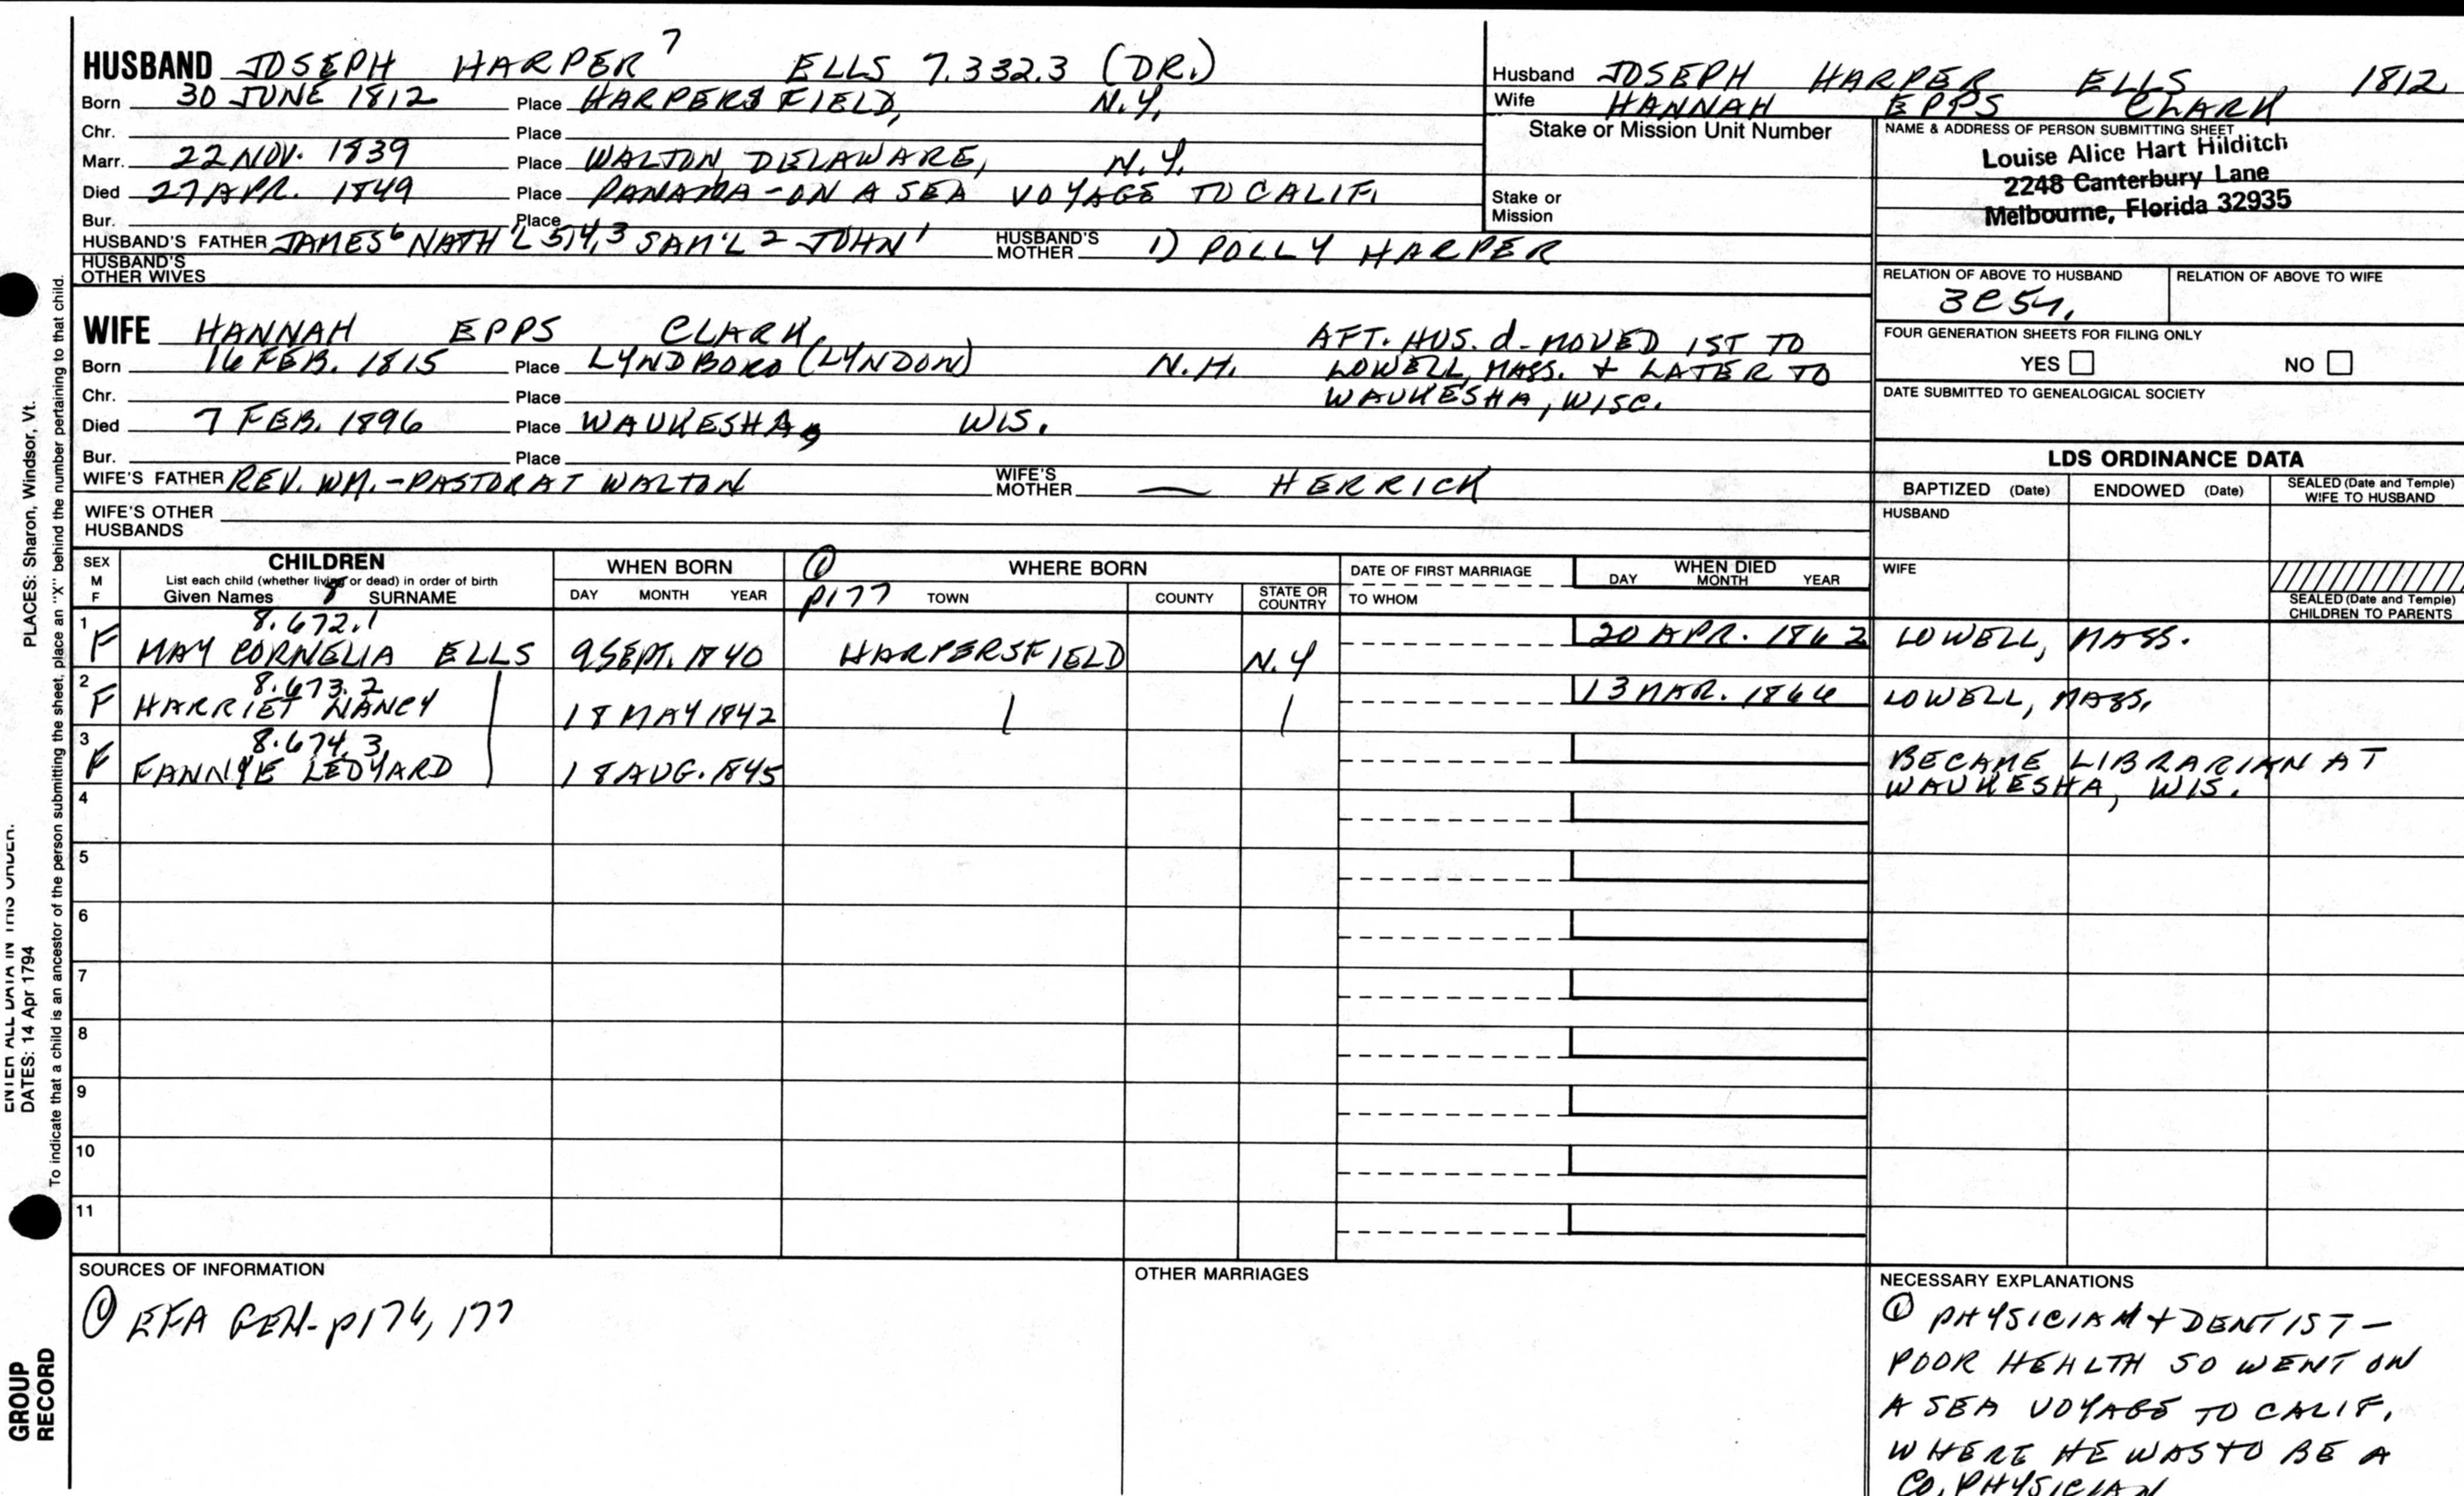 HUSBAND JOSEPH HARPER⁷ ELLS 7.332.3 (DR.)
Born 30 JUNE 1812 Place HARPERSFIELD, N.Y.
Chr. Place
Marr. 22 NOV. 1839 Place WALTON, DELAWARE, N.Y.
Died 27 APR. 1849 Place PANAMA - ON A SEA VOYAGE TO CALIF.
Bur. Place
HUSBAND'S FATHER JAMES⁶ NATH'L 5,4,3 SAM'L 2 JOHN¹ HUSBAND'S MOTHER 1) POLLY HARPER
HUSBAND'S OTHER WIVES
Husband JOSEPH HARPER ELLS, 1812
Wife HANNAH EPPS CLARK
Stake or Mission Unit Number
Stake or Mission
NAME & ADDRESS OF PERSON SUBMITTING SHEET
Louise Alice Hart Hilditch
2248 Canterbury Lane
Melbourne, Florida 32935
RELATION OF ABOVE TO HUSBAND
RELATION OF ABOVE TO WIFE
FOUR GENERATION SHEETS FOR FILING ONLY
YES NO
DATE SUBMITTED TO GENEALOGICAL SOCIETY
WIFE HANNAH EPPS CLARK
Born 16 FEB. 1815 Place LYNDBORO (LYNDON) N.H.
Chr. Place
Died 7 FEB. 1896 Place WAUKESHA, WIS.
Bur. Place
AFT. HUS. d- MOVED 1ST TO
LOWELL, MASS. + LATER TO
WAUKESHA, WISC.
WIFE'S FATHER REV. WM. - PASTOR AT WALTON WIFE'S MOTHER — HERRICK
WIFE'S OTHER HUSBANDS
LDS ORDINANCE DATA
BAPTIZED (Date) ENDOWED (Date) SEALED (Date and Temple) WIFE TO HUSBAND
HUSBAND
WIFE
SEALED (Date and Temple) CHILDREN TO PARENTS
SEX M F
CHILDREN
List each child (whether living or dead) in order of birth
Given Names 8 SURNAME
WHEN BORN
DAY MONTH YEAR
① p177
WHERE BORN
TOWN COUNTY STATE OR COUNTRY
DATE OF FIRST MARRIAGE
TO WHOM
WHEN DIED
DAY MONTH YEAR
8.672.1
1 F MAY CORNELIA ELLS 9 SEPT. 1840 HARPERSFIELD N.Y 20 APR. 1862 LOWELL, MASS.
8.673.2
2 F HARRIET NANCY 18 MAY 1842 13 MAR. 1866 LOWELL, MASS.
8.674.3
3 F FANNYE LEDYARD 18 AUG. 1845 BECAME LIBRARIAN AT
WAUKESHA, WIS.
4
5
6
7
8
9
10
11
SOURCES OF INFORMATION
① EFA GEN- p176, 177
OTHER MARRIAGES
NECESSARY EXPLANATIONS
① PHYSICIAN + DENTIST -
POOR HEALTH SO WENT ON
A SEA VOYAGE TO CALIF.
WHERE HE WAS TO BE A
CO. PHYSICIAN
PLACES: Sharon, Windsor, Vt.
To indicate that a child is an ancestor of the person submitting the sheet, place an "X" behind the number pertaining to that child.
ENTER ALL DATA IN THIS ORDER:
DATES: 14 Apr 1794
GROUP
RECORD